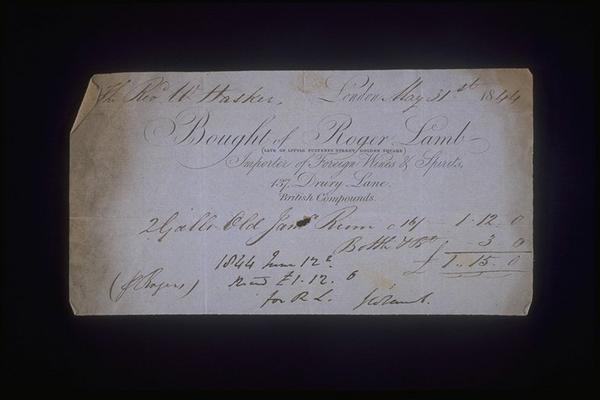 The Revd W Hasker, London May 31st 1844
Bought of Roger Lamb
(LATE OF LITTLE PULTENEY STREET GOLDEN SQUARE)
Importer of Foreign Wines & Spirits,
137, Drury Lane.
British Compounds.
2 Galls Old Jama Rum @ 16/- 1.12.0
Bottle & 3.0
£ 1..15.0
1844 June 12
Recd £1.12.6
(J Rogers) for R L.